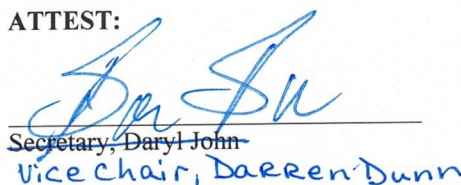 ATTEST:
Secretary, Daryl John
Vice Chair, Darren Dunn